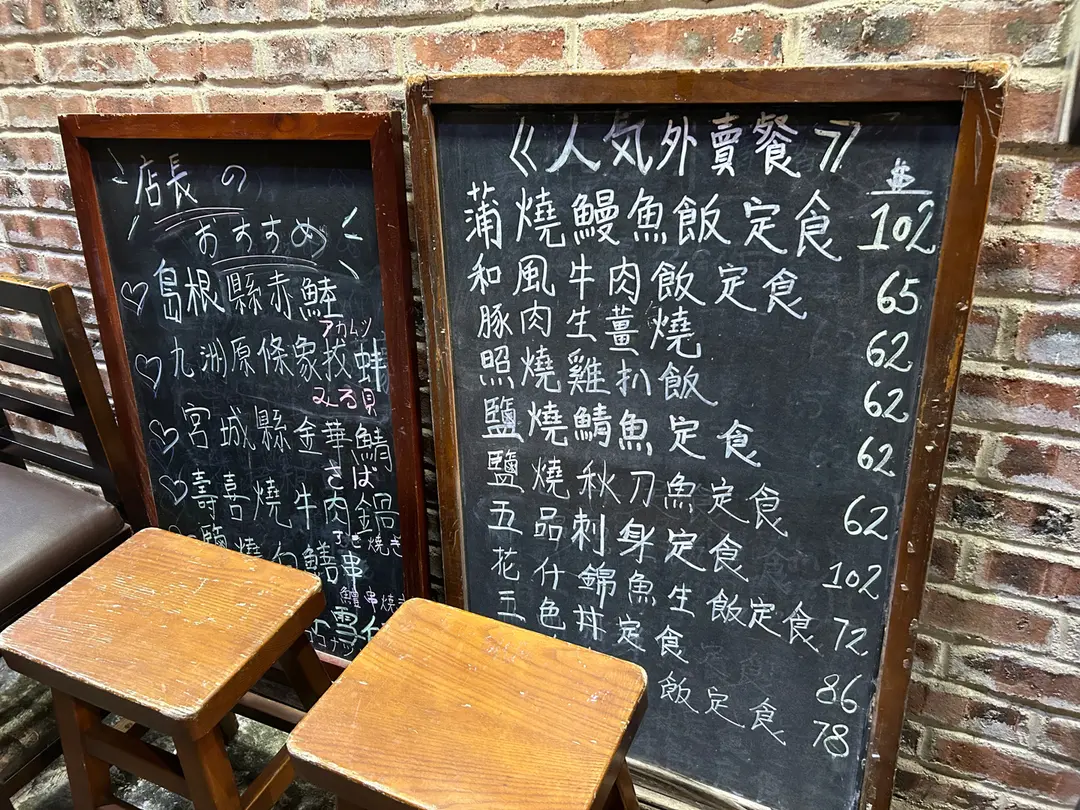 店長の
おすすめ
♡島根縣赤鯥
アカムツ
♡九洲原條象找蚌
みる貝
♡宮城縣金華鯖
さば
♡壽喜燒牛肉鍋
すき焼き
鹽燒白鱔串
鱣串焼き
《人気外賣餐》
$
蒲燒鰻魚飯定食 102
和風牛肉飯定食 65
豚肉生薑燒 62
照燒雞扒飯 62
鹽燒鯖魚定食 62
鹽燒秋刀魚定食 62
五品刺身定食 102
花什錦魚生飯定食 72
五色丼定食 86
飯定食 78